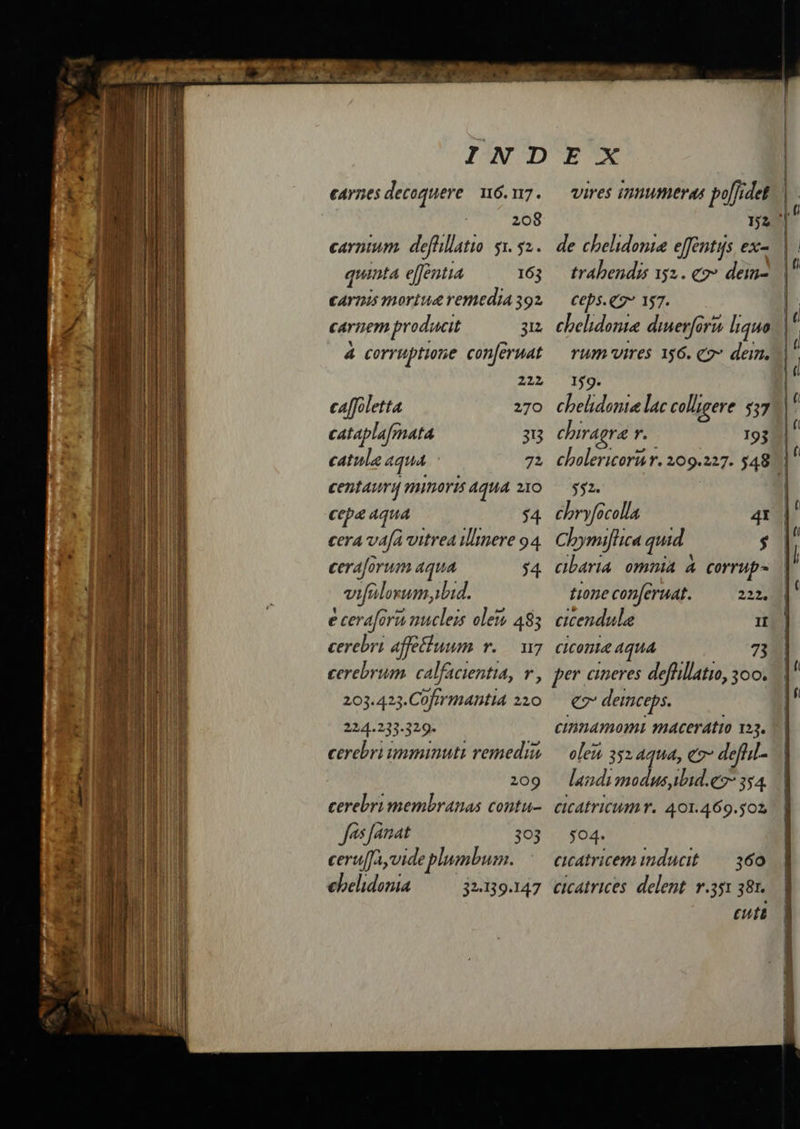 INDEX
carnes decoquere 116.117.
208
carnium destillatio 51.52.
quinta essentia 163
carnis mortuæ remedia 392
carnem producit 312
à corruptione conseruat
222
cassoletta 270
cataplasmata 313
catulæ aqua 72
centaurij minoris aqua 210
cepæ aqua 54
cera vasa vitrea illinere 94
cerasorum aqua 54
visulorum, ibid.
è cerasorū nucleis oleū 483
cerebri affectuum r. 117
cerebrum calfacientia, r,
203.423. Cōfirmantia 220
224.233.329.
cerebri imminuti remediū
209
cerebri membranas contu-
sas sanat 303
cerussa, vide plumbum.
chelidonia 32.139.147
vires innumeras possidet
152
de chelidoniæ essentijs ex-
trahendis 152. & dein-
ceps. & 157.
chelidoniæ diuersorū liquo
rum vires 156. & dein.
159.
chelidoniæ lac colligere 537
chiragræ r. 193
cholericorū r. 209.227. 548
552.
chrysocolla 41
Chymistica quid 5
cibaria omnia à corrup-
tione conseruat. 222.
cicendulæ 11
ciconiæ aqua 73
per cineres destillatio, 300.
& deinceps.
cinnamomi maceratio 123.
oleū 352 aqua, & destil-
landi modus, ibid. & 354
cicatricum r. 401.469.502
504.
cicatricem inducit 360
cicatrices delent r. 351 381.
cuti